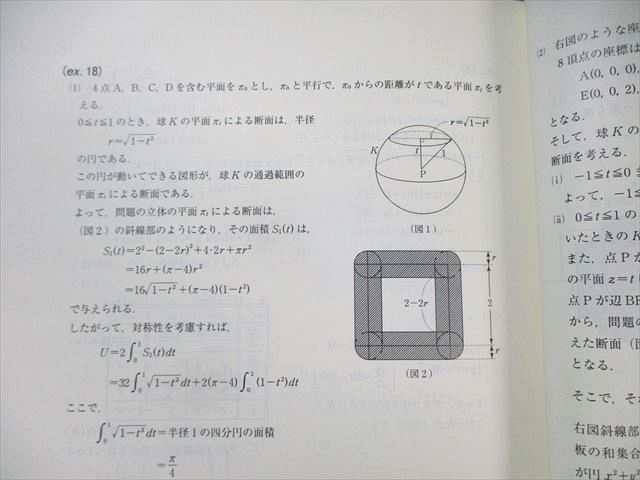 (ex. 18)
(1) 4点A, B, C, Dを含む平面をπ₀とし, π₀と平行で, π₀からの距離がtである平面πₜを考
える.
0≦t≦1のとき, 球Kの平面πₜによる断面は, 半径
r=√(1−t²)
の円である.
この円が動いてできる図形が, 球Kの通過範囲の
平面πₜによる断面である.
よって, 問題の立体の平面πₜによる断面は,
(図2)の斜線部のようになり, その面積S₁(t)は,
S₁(t)=2²−(2−2r)²+4·2r+πr²
=16r+(π−4)r²
=16√(1−t²)+(π−4)(1−t²)
で与えられる.
したがって, 対称性を考慮すれば,
U=2∫₀¹S₁(t)dt
=32∫₀¹√(1−t²)dt+2(π−4)∫₀¹(1−t²)dt
ここで,
∫₀¹√(1−t²)dt=半径1の四分円の面積
=π/4
r=√(1−t²)
K
r
t
1
P
(図1)
r
2−2r
2
r
(図2)
(2) 右図のような座
8頂点の座標は
A(0, 0, 0),
E(0, 0, 2),
となる.
そして, 球Kの
断面を考える.
(i) −1≦t≦0
よって, −1≦
(ii) 0≦t≦1の
いたときのK
また, 点Pが
の平面z=t
点Pが辺BF
から, 問題の
えた断面(図
となる.
そこで, それ
右図斜線部
板の和集合
が円x²+y²